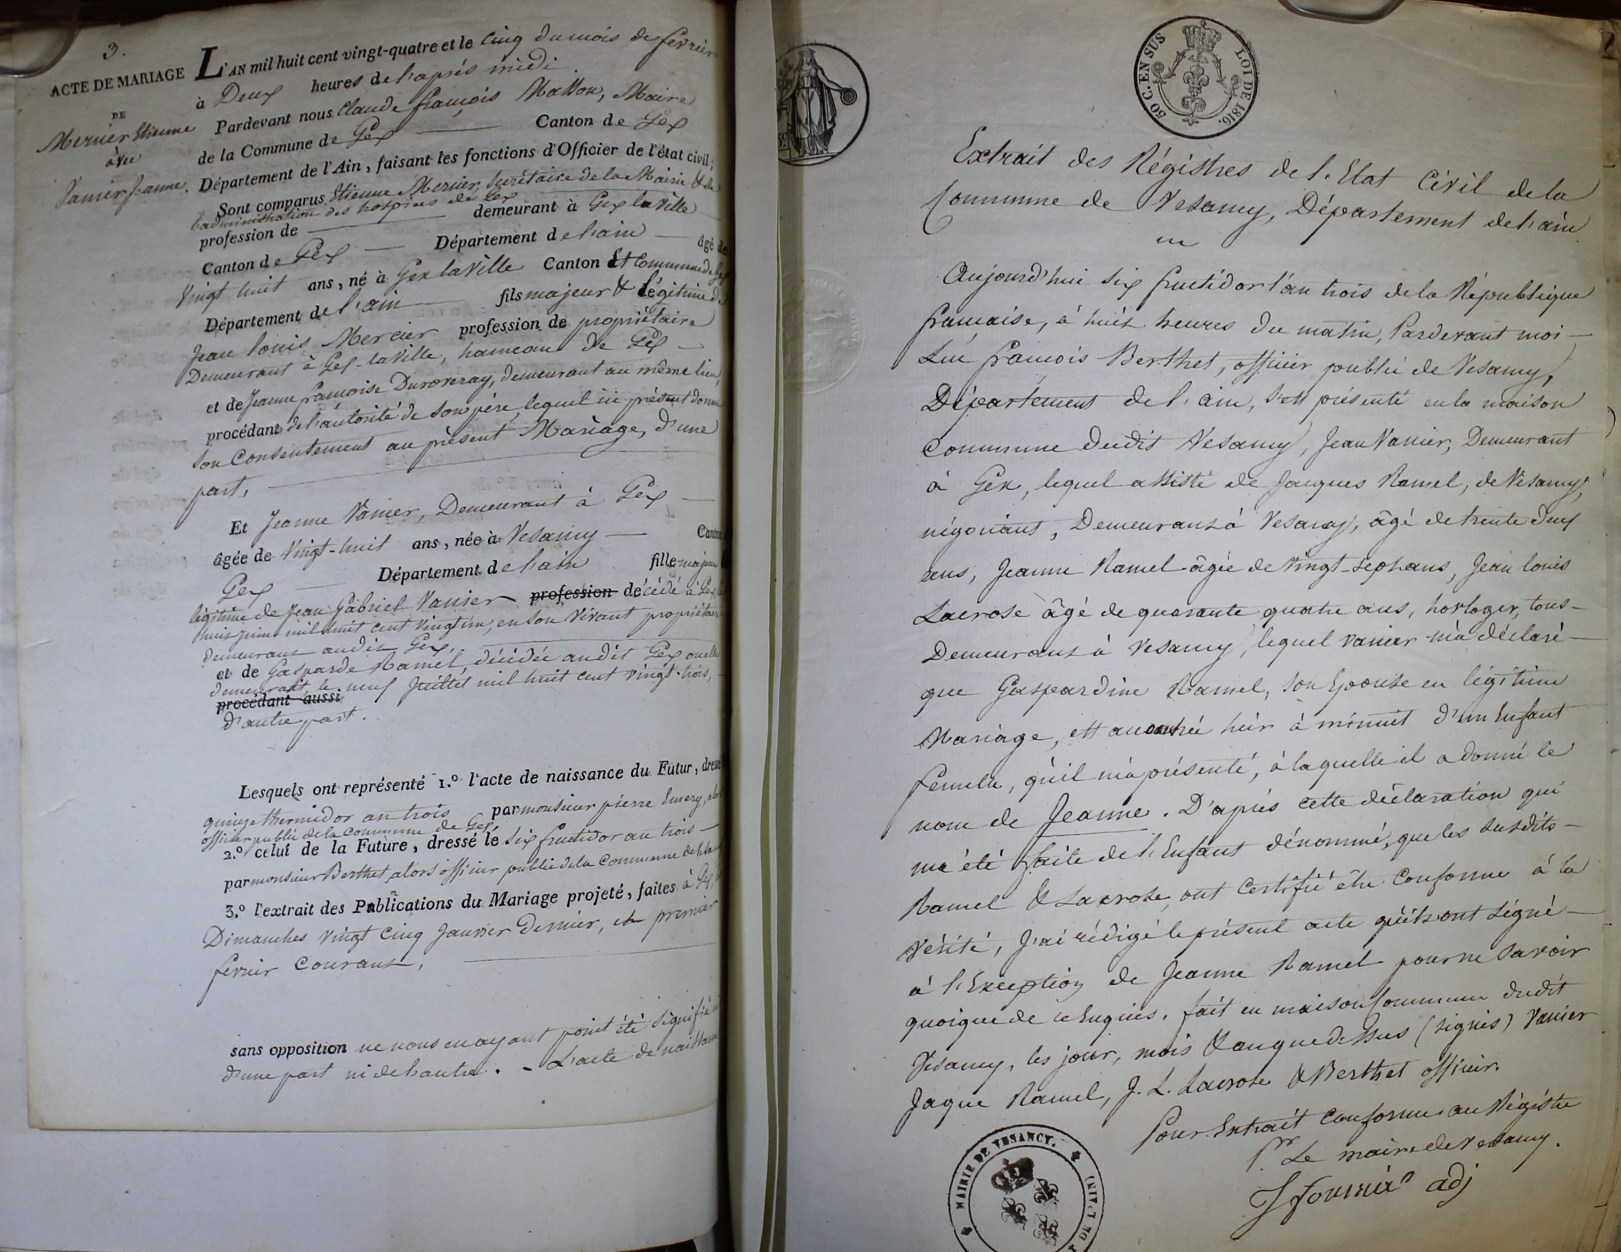 3.
ACTE DE MARIAGE
DE
Mercier Etienne
avec
Vanier Jeanne.
L'AN mil huit cent vingt-quatre et le cinq du mois de fevrier
à Deux heures de l'après midi.
Pardevant nous Claude françois Maire
de la Commune de Gex Canton de Gex
Département de l'Ain, faisant les fonctions d'Officier de l'état civil;
Sont comparus Etienne Mercier, Secrétaire de la Mairie & de
l'administration des hospices de Gex
profession de demeurant à Gex la Ville
Canton de Gex Département de l'ain âgé de
Vingt huit ans, né à Gex la Ville Canton Et Commune de Gex
Département de l'ain fils majeur & légitime de
Jean Louis Mercier profession de propriétaire
Demeurant à Gex-la Ville, hameau de Gex
et de Jeanne françoise Duroveray, demeurant au même lieu,
procédant de l'autorité de son père, lequel ici présent donne
son Consentement au présent Mariage, d'une
part,
Et Jeanne Vanier, Demeurant à Gex
âgée de Vingt-huit ans, née à Vesancy Canton
Gex Département de l'ain fille majeure
légitime de Jean Gabriel Vanier profession décédé à Gex
huit juin mil huit cent vingt un, en son Vivant propriétaire
demeurant audit Gex,
et de Gasparde Ramel, décédée audit Gex ou elle
demeurait le neuf Juillet mil huit cent vingt-trois,
procédant aussi
d'autre part.
Lesquels ont représenté 1.º l'acte de naissance du Futur, dressé
quinze thermidor an trois par monsieur pierre Emery, alors
officier public de la commune de Gex
2.º celui de la Future, dressé le Six fructidor an trois
par monsieur Berthet, alors officier public de la Commune de Vesancy
3.º l'extrait des Publications du Mariage projeté, faites à Gex
Dimanches vingt cinq Janvier dernier, et premier
fevrier courant.
sans opposition ne nous en ayant point été signifié
d'une part ni de l'autre. - L'acte de naissance
50 C. EN SUS LOI DE 1816.
Extrait des Régistres de l'Etat Civil de la
Commune de Vesancy, Département de l'ain
Aujourd'hui six fructidor l'an trois de la République
francaise, à huit heures du matin, Pardevant moi
Luc francois Berthet, officier public de Vesancy,
Département de l'ain, s'est présenté en la maison
Commune dudit Vesancy, Jean Vanier, Demeurant
à Gex, lequel assisté de Jacques Ramel, de Vesancy,
négociant, Demeurant à Vesancy, âgé de trente deux
ans, Jeanne Ramel âgée de vingt-sept ans, Jean louis
Lacrose âgé de quarante quatre ans, horloger, tous
Demeurant à Vesancy, lequel vanier m'a déclaré
que Gaspardine Ramel, son Epouse en légitime
Mariage, est accouchée hier à minuit d'un Enfant
femelle, qu'il m'a présenté, à laquelle il a donné le
nom de Jeanne. D'après cette déclaration qui
m'a été faite de l'Enfant dénommé, que les susdits
Ramel & Lacrose, ont certifié être conforme à la
vérité, J'ai rédigé le présent acte qu'ils ont signé
à l'Exception de Jeanne Ramel pour ne savoir
quoique de ce Enquis. fait en maison Commune dudit
Vesancy, les jour, mois & an que dessus (signés) Vanier
Jaque Ramel, J. L. Lacrose & Berthet officier.
Pour Extrait conforme au Régistre
Pr Le maire de Vesancy.
adj
MAIRIE DE VESANCY. (DÉP.T DE L'AIN)